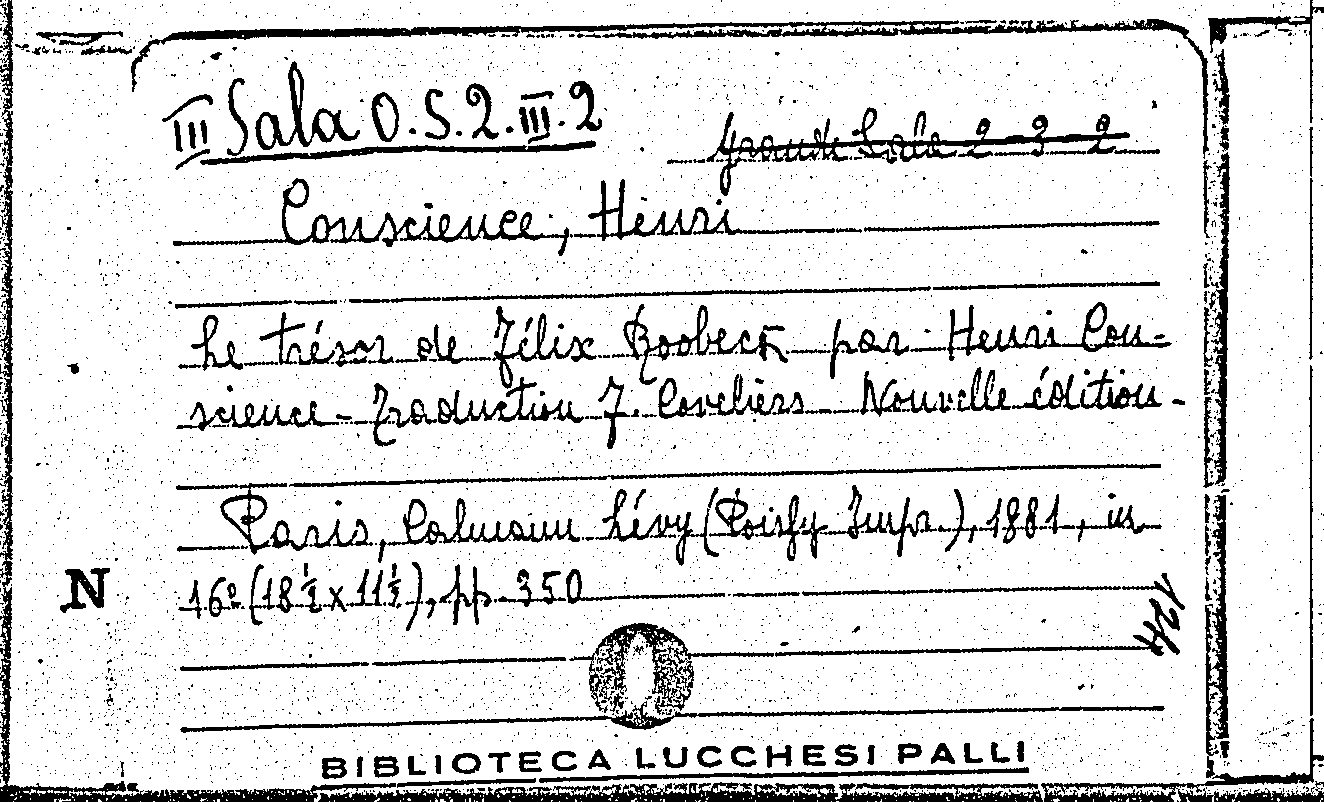 III Sala O.S.2.III.2
Grande Sala 2-3-2
Conscience, Henri
Le trésor de Félix Roobeck par Henri Con-
science - Traduction F. Coveliers - Nouvelle édition -
Paris, Calmann Lévy (Poissy Impr.), 1881, in
16º (18 ½ x 11 ½), pp. 350
N
BIBLIOTECA LUCCHESI PALLI